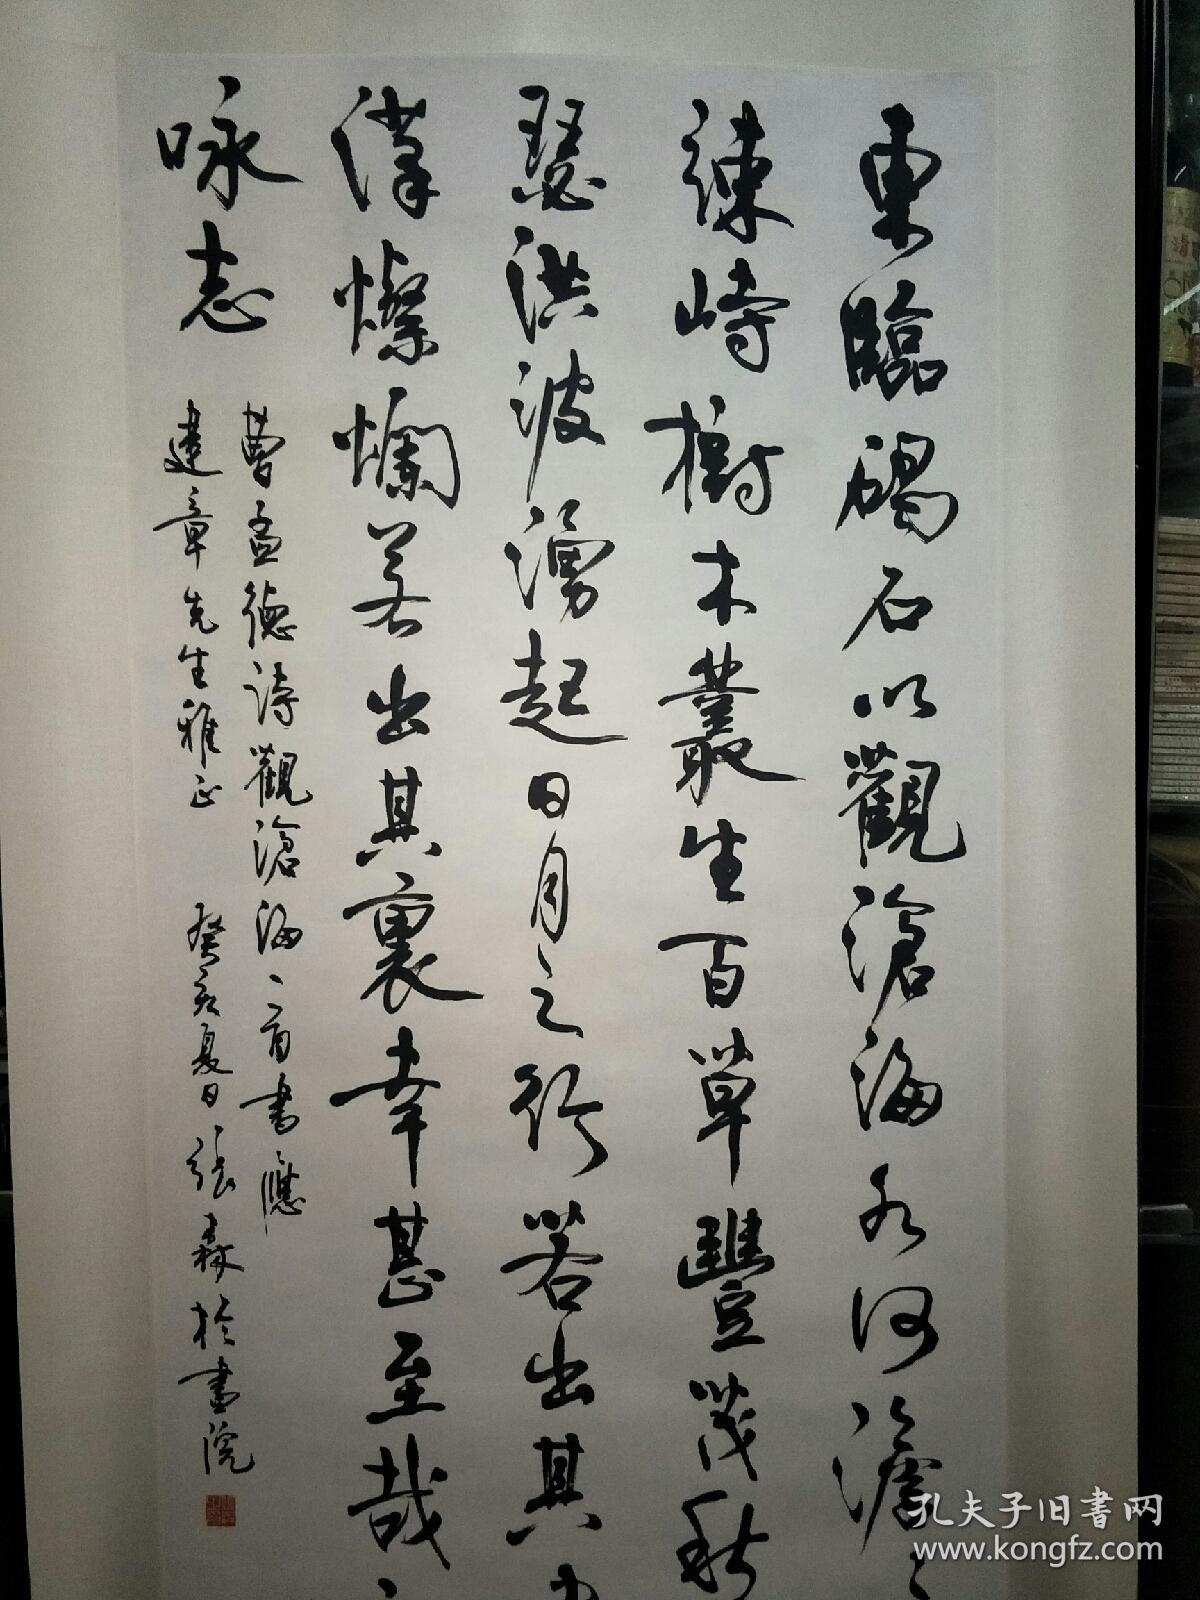 東臨碣石以觀滄海水何澹
竦峙樹木叢生百草豐茂秋
瑟洪波湧起日月之行若出其中
漢燦爛若出其裏幸甚至哉
咏志
曹孟德詩觀滄海一首書應
建章先生雅正 癸亥夏日張森於書院
孔夫子旧书网
www.kongfz.com